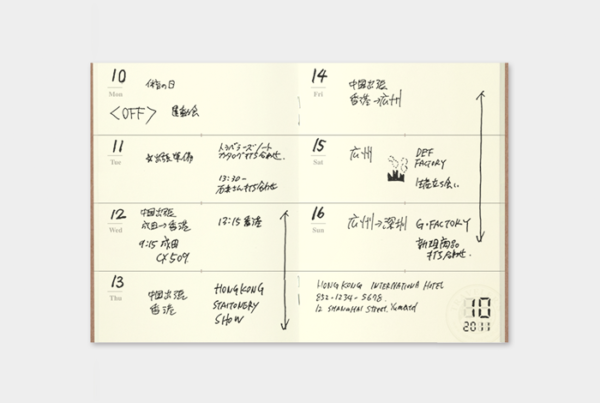 10
Mon
体育の日
<OFF> 運動会
11
Tue
出張準備
トラベラーズノート
カタログ打ち合わせ.
13:30-
打ち合わせ
12
Wed
中国出張
成田→香港
9:15 成田
CX509
13:15 香港
13
Thu
中国出張
香港
HONGKONG
STATIONERY
SHOW
14
Fri
中国出張
香港→広州
15
Sat
広州
DEF
FACTORY
生産立ち会い
16
Sun
広州→深圳
G・FACTORY
新規商品
打ち合わせ.
HONG KONG INTERNATIONAL HOTEL
852-1234-5678.
12 SHANGHAI STREET.
10
2011